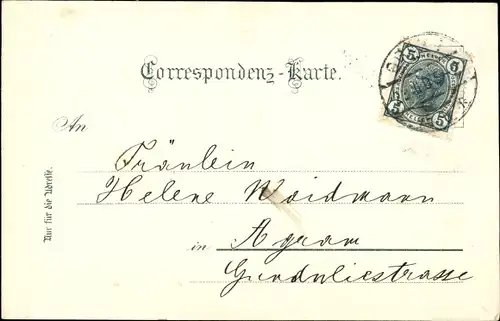 Correspondenz-Karte.
An
Fräulein
Helene Waidmann
in Agram
Gundulićstrasse
Nur für die Adresse.
5 5
5 5